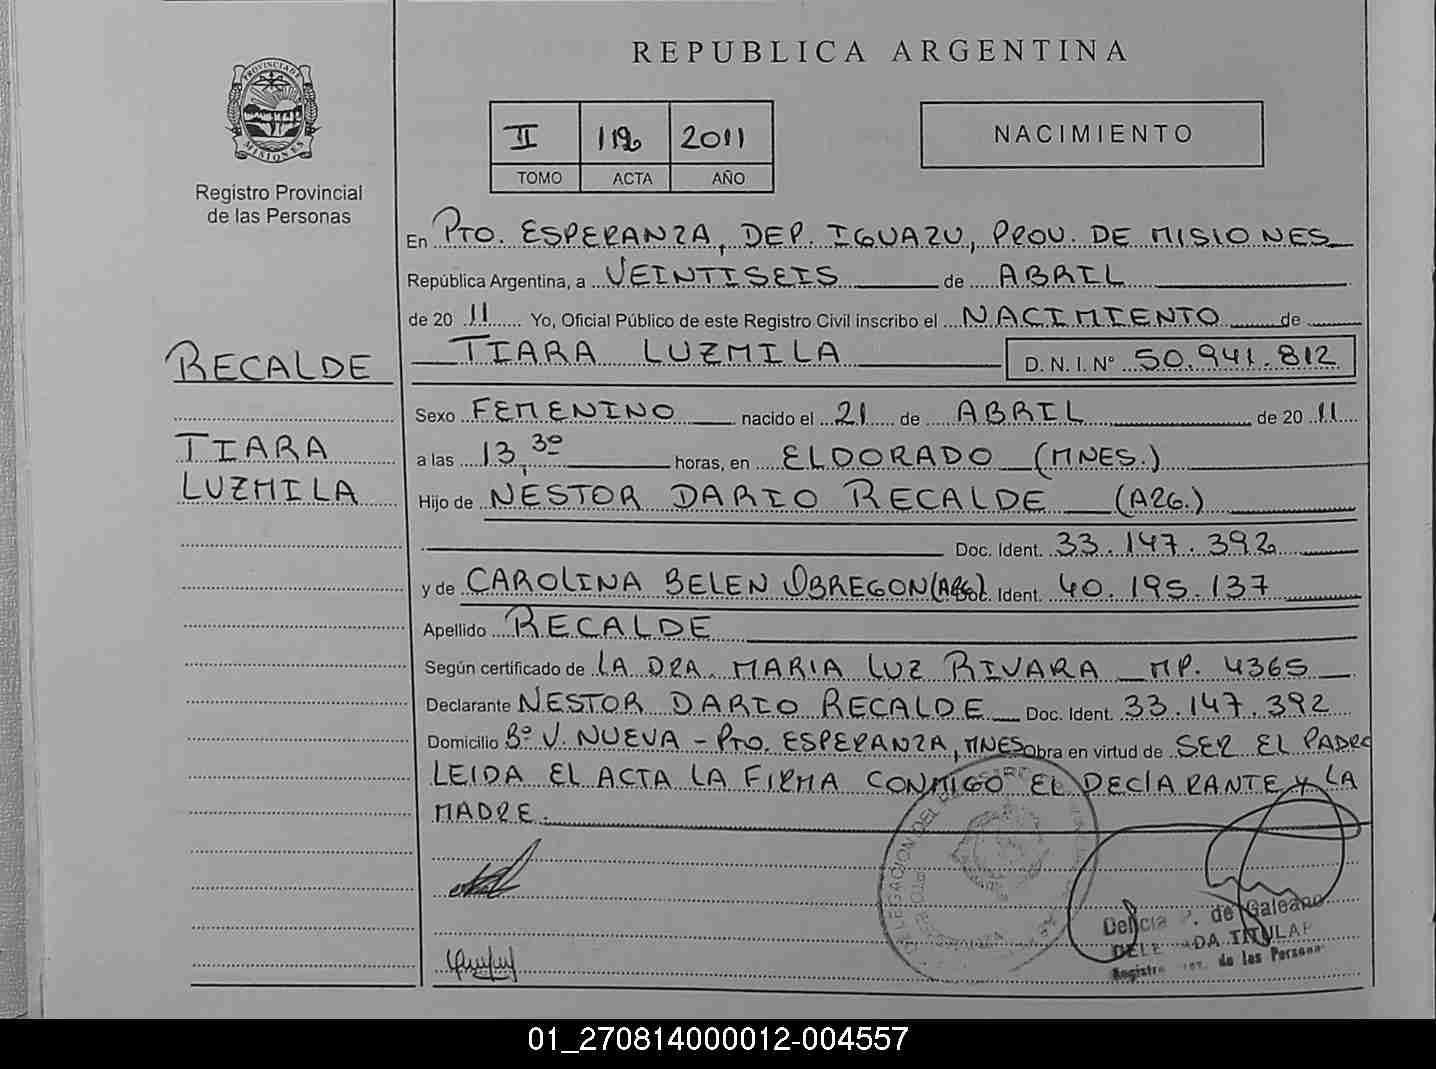 REPUBLICA ARGENTINA
PROVINCIA DE
MISIONES
Registro Provincial
de las Personas
II 112 2011
TOMO ACTA AÑO
NACIMIENTO
En PTO. ESPERANZA, DEP. IGUAZU, PROV. DE MISIONES
República Argentina, a VEINTISEIS de ABRIL
de 20 11 Yo, Oficial Público de este Registro Civil inscribo el NACIMIENTO de
TIARA LUZMILA D. N. I. N° 50.941.812
RECALDE
TIARA
LUZMILA
Sexo FEMENINO nacido el 21 de ABRIL de 20 11
a las 13,30 horas, en ELDORADO (MNES.)
Hijo de NESTOR DARIO RECALDE (ARG.)
Doc. Ident. 33.147.392
y de CAROLINA BELEN OBREGON (ARG.) Doc. Ident. 40.195.137
Apellido RECALDE
Según certificado de LA DRA. MARIA LUZ RIVARA MP. 4365
Declarante NESTOR DARIO RECALDE Doc. Ident. 33.147.392
Domicilio B° V. NUEVA - PTO. ESPERANZA, MNES Obra en virtud de SER EL PADRE
LEIDA EL ACTA LA FIRMA CONMIGO EL DECLARANTE Y LA
MADRE.
DELEGACION DEL
Delicia de Galeano
TITULAR
Registro de las Personas
01_270814000012-004557